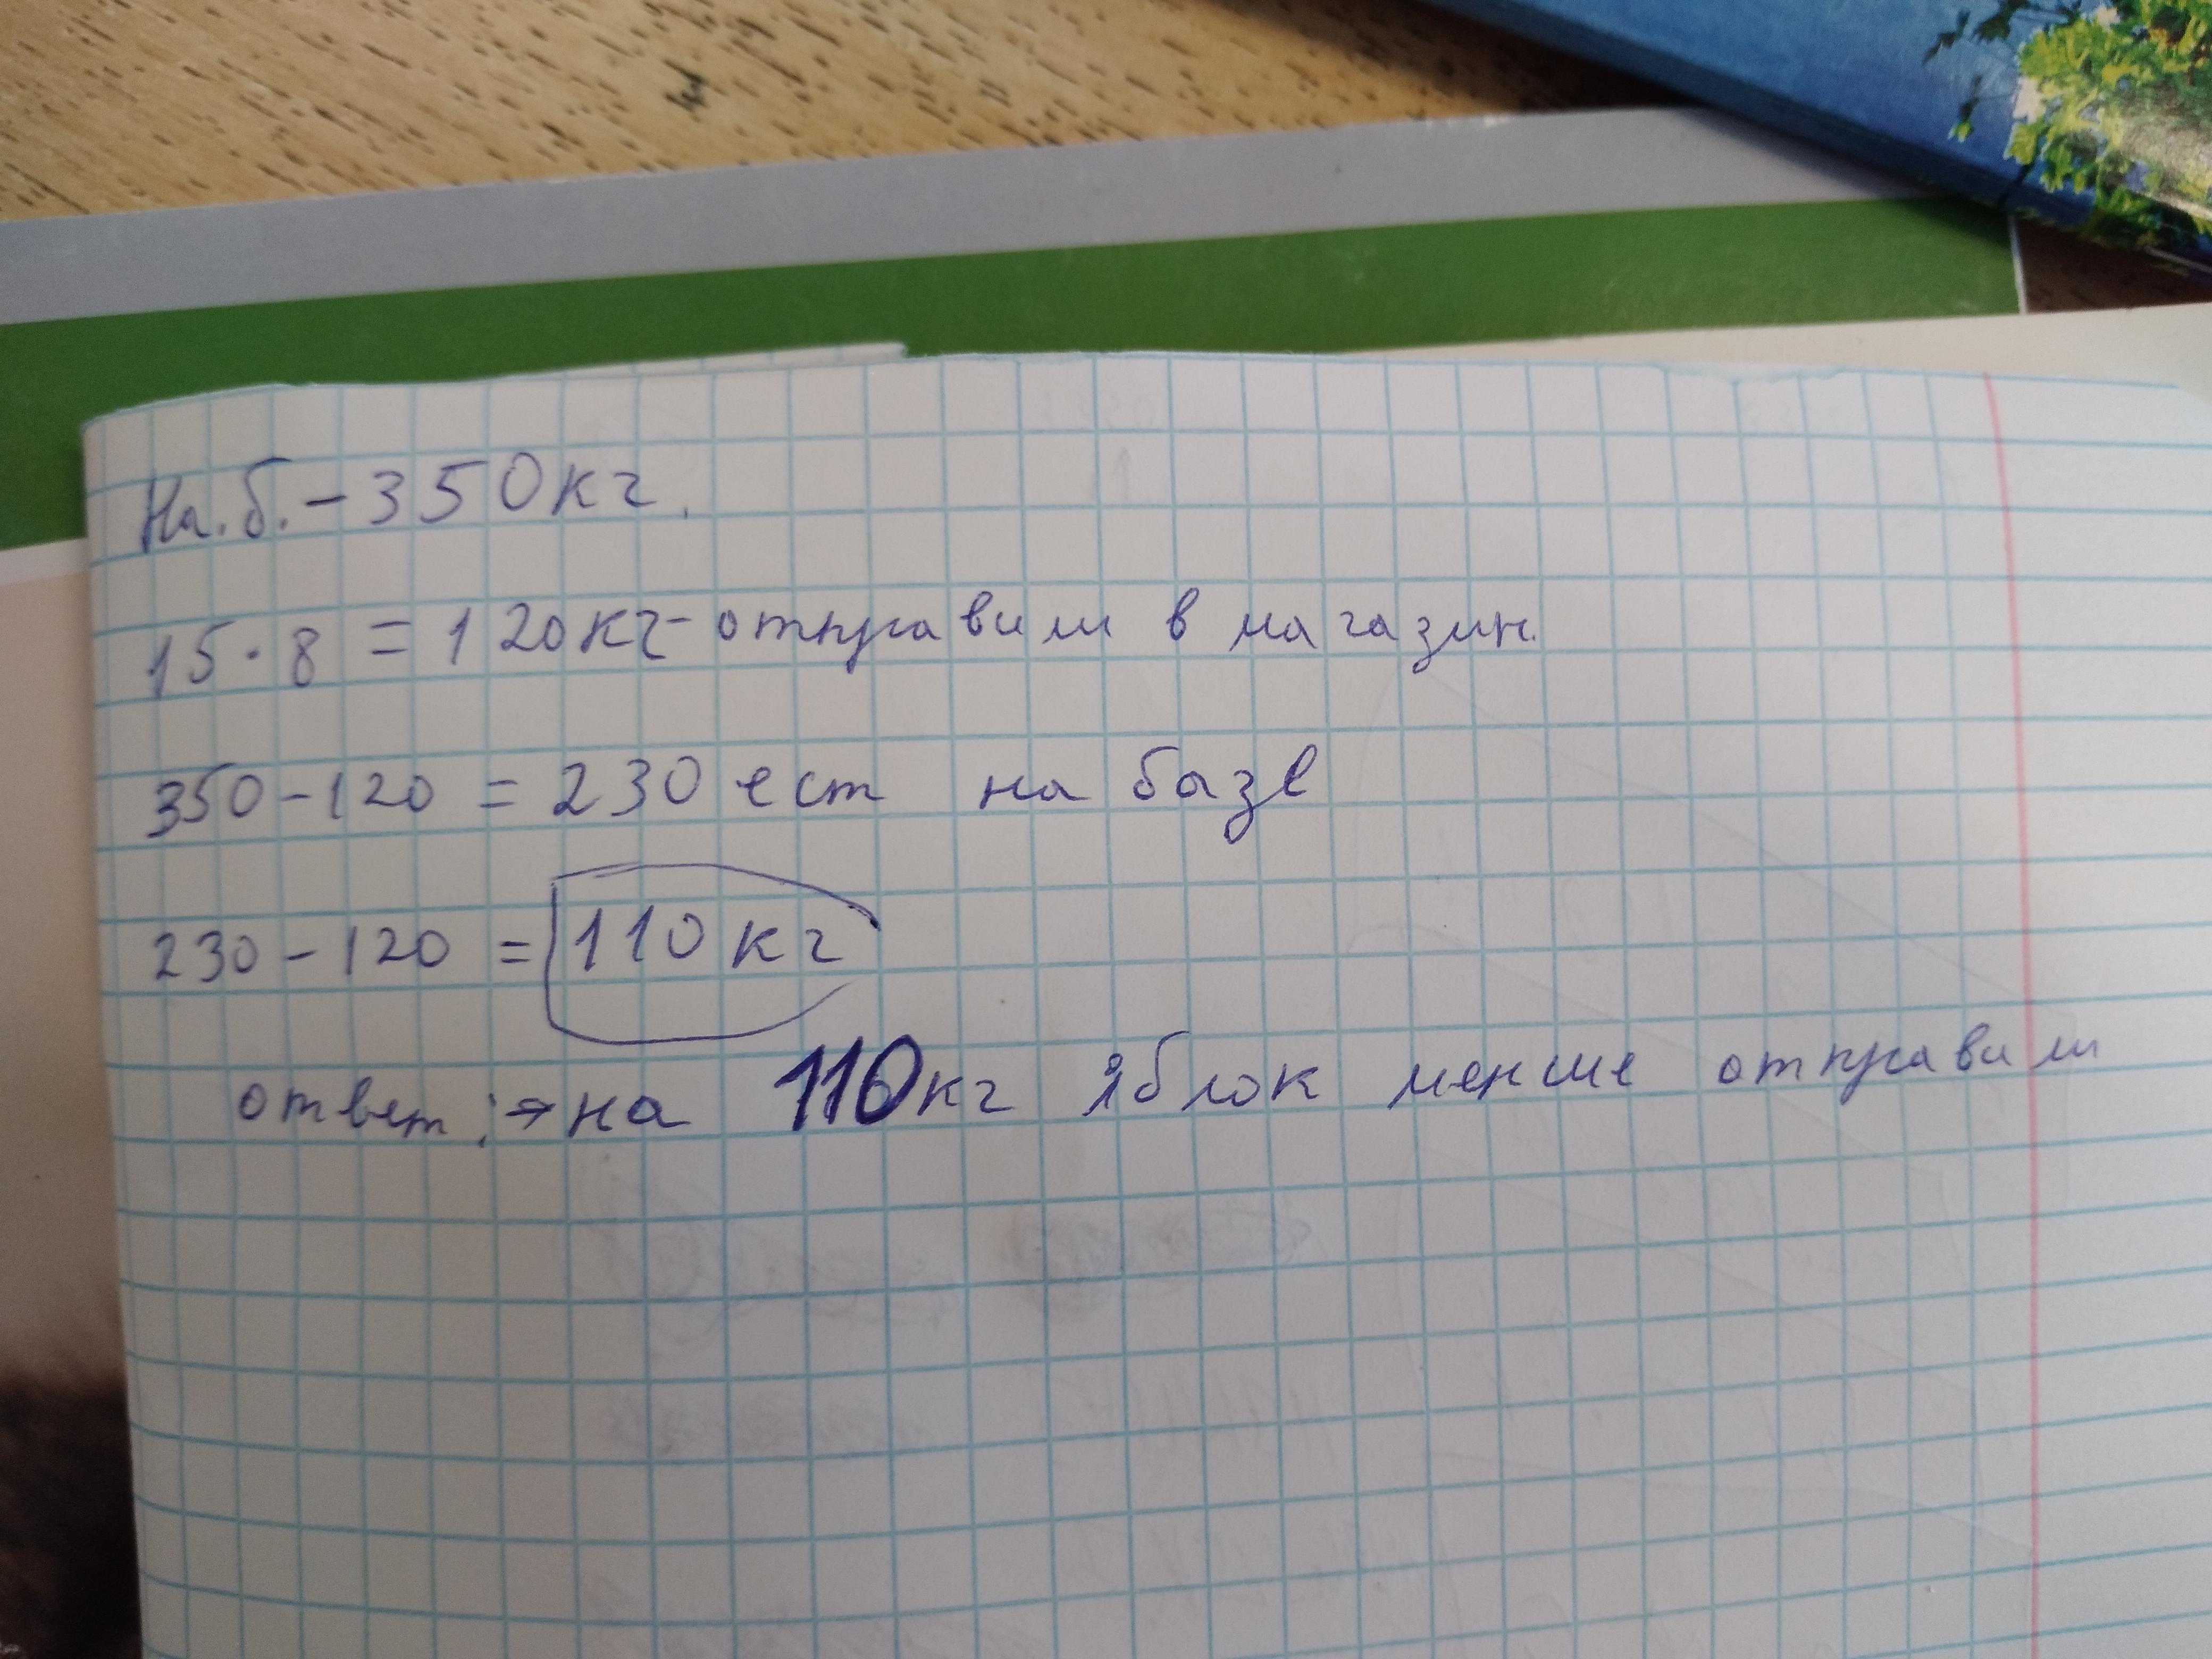 На.б. - 350кг.
15 · 8 = 120кг - отправили в магазин.
350 - 120 = 230 ест на базе
230 - 120 = 110 кг
ответ: → на 110кг яблок менше отправили